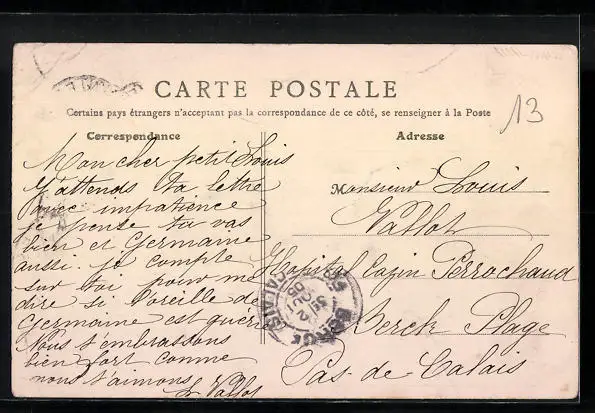 CARTE POSTALE
Certains pays étrangers n'acceptant pas la correspondance de ce côté, se renseigner à la Poste
13
Correspondance
Mon cher petit Louis
J'attends ta lettre
avec impatience
je pense tu vas
bien et Germaine
aussi. je compte
sur toi pour me
dire si l'oreille de
Germaine est guérie
Nous t'embrassons
bien fort comme
nous t'aimons
Vallot
Adresse
Monsieur Louis
Vallot
Hopital Cazin Perrochaud
Berck Plage
Pas-de-Calais
BERCK